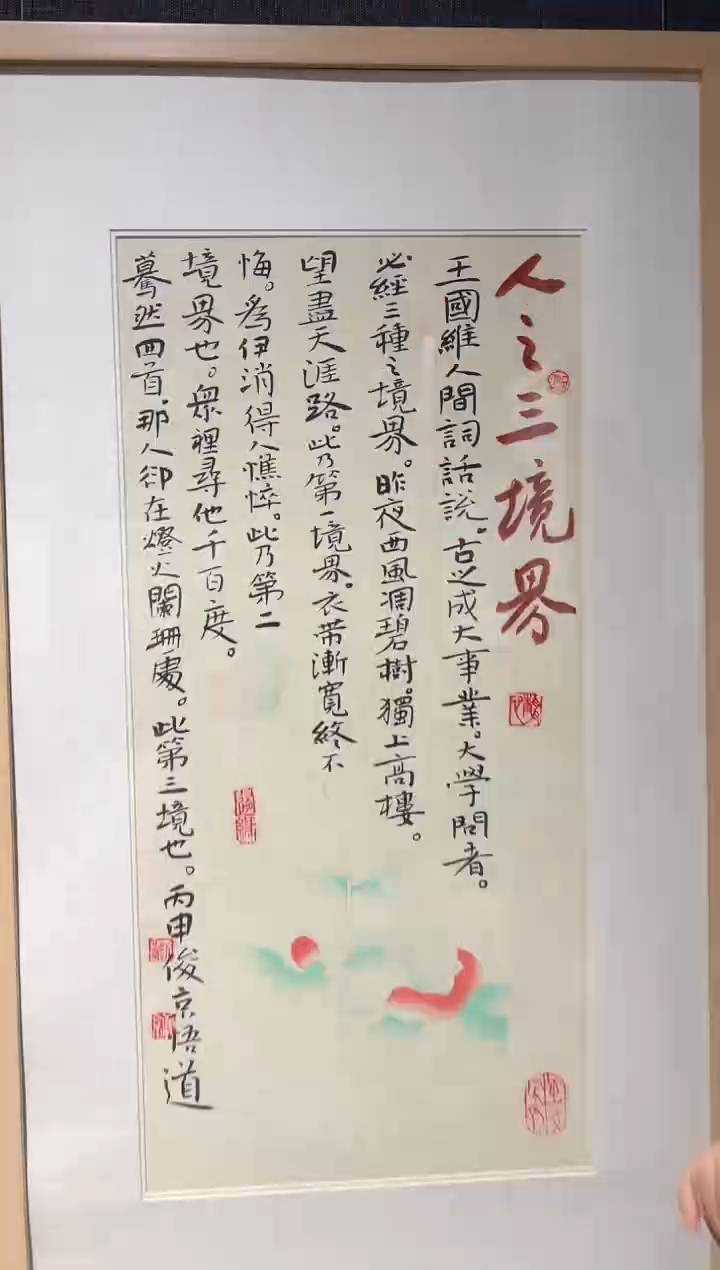 人之三境界
王國維人間詞話說。古之成大事業。大學問者。
必經三種之境界。昨夜西風凋碧樹。獨上高樓。
望盡天涯路。此乃第一境界。衣帶漸寬終不
悔。為伊消得人憔悴。此乃第二
境界也。眾裡尋他千百度。
驀然回首。那人卻在燈火闌珊處。此第三境也。丙申俊京悟道